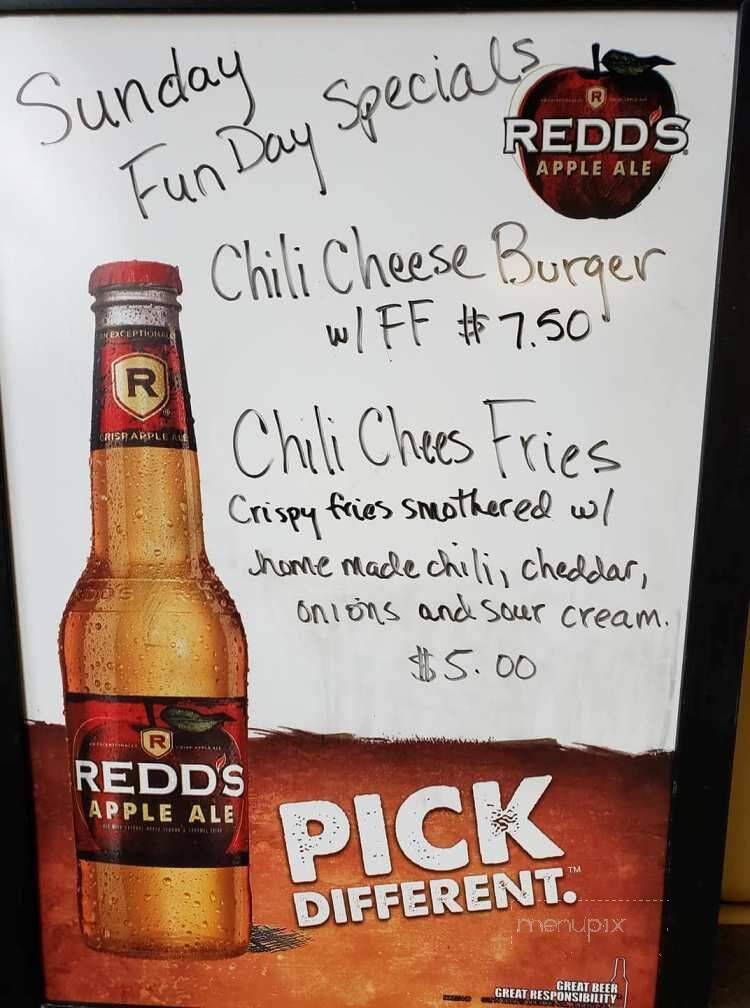 Sunday
Fun Day Specials
R
REDD'S
APPLE ALE
Chili Cheese Burger
w/ FF $7.50
Chili Chees Fries
Crispy fries smothered w/
home made chili, cheddar,
onions and sour cream.
$5.00
EXCEPTIONAL
R
CRISP APPLE ALE
R
REDD'S
APPLE ALE
PICK
DIFFERENT.™
menupix
GREAT BEER
GREAT RESPONSIBILITY